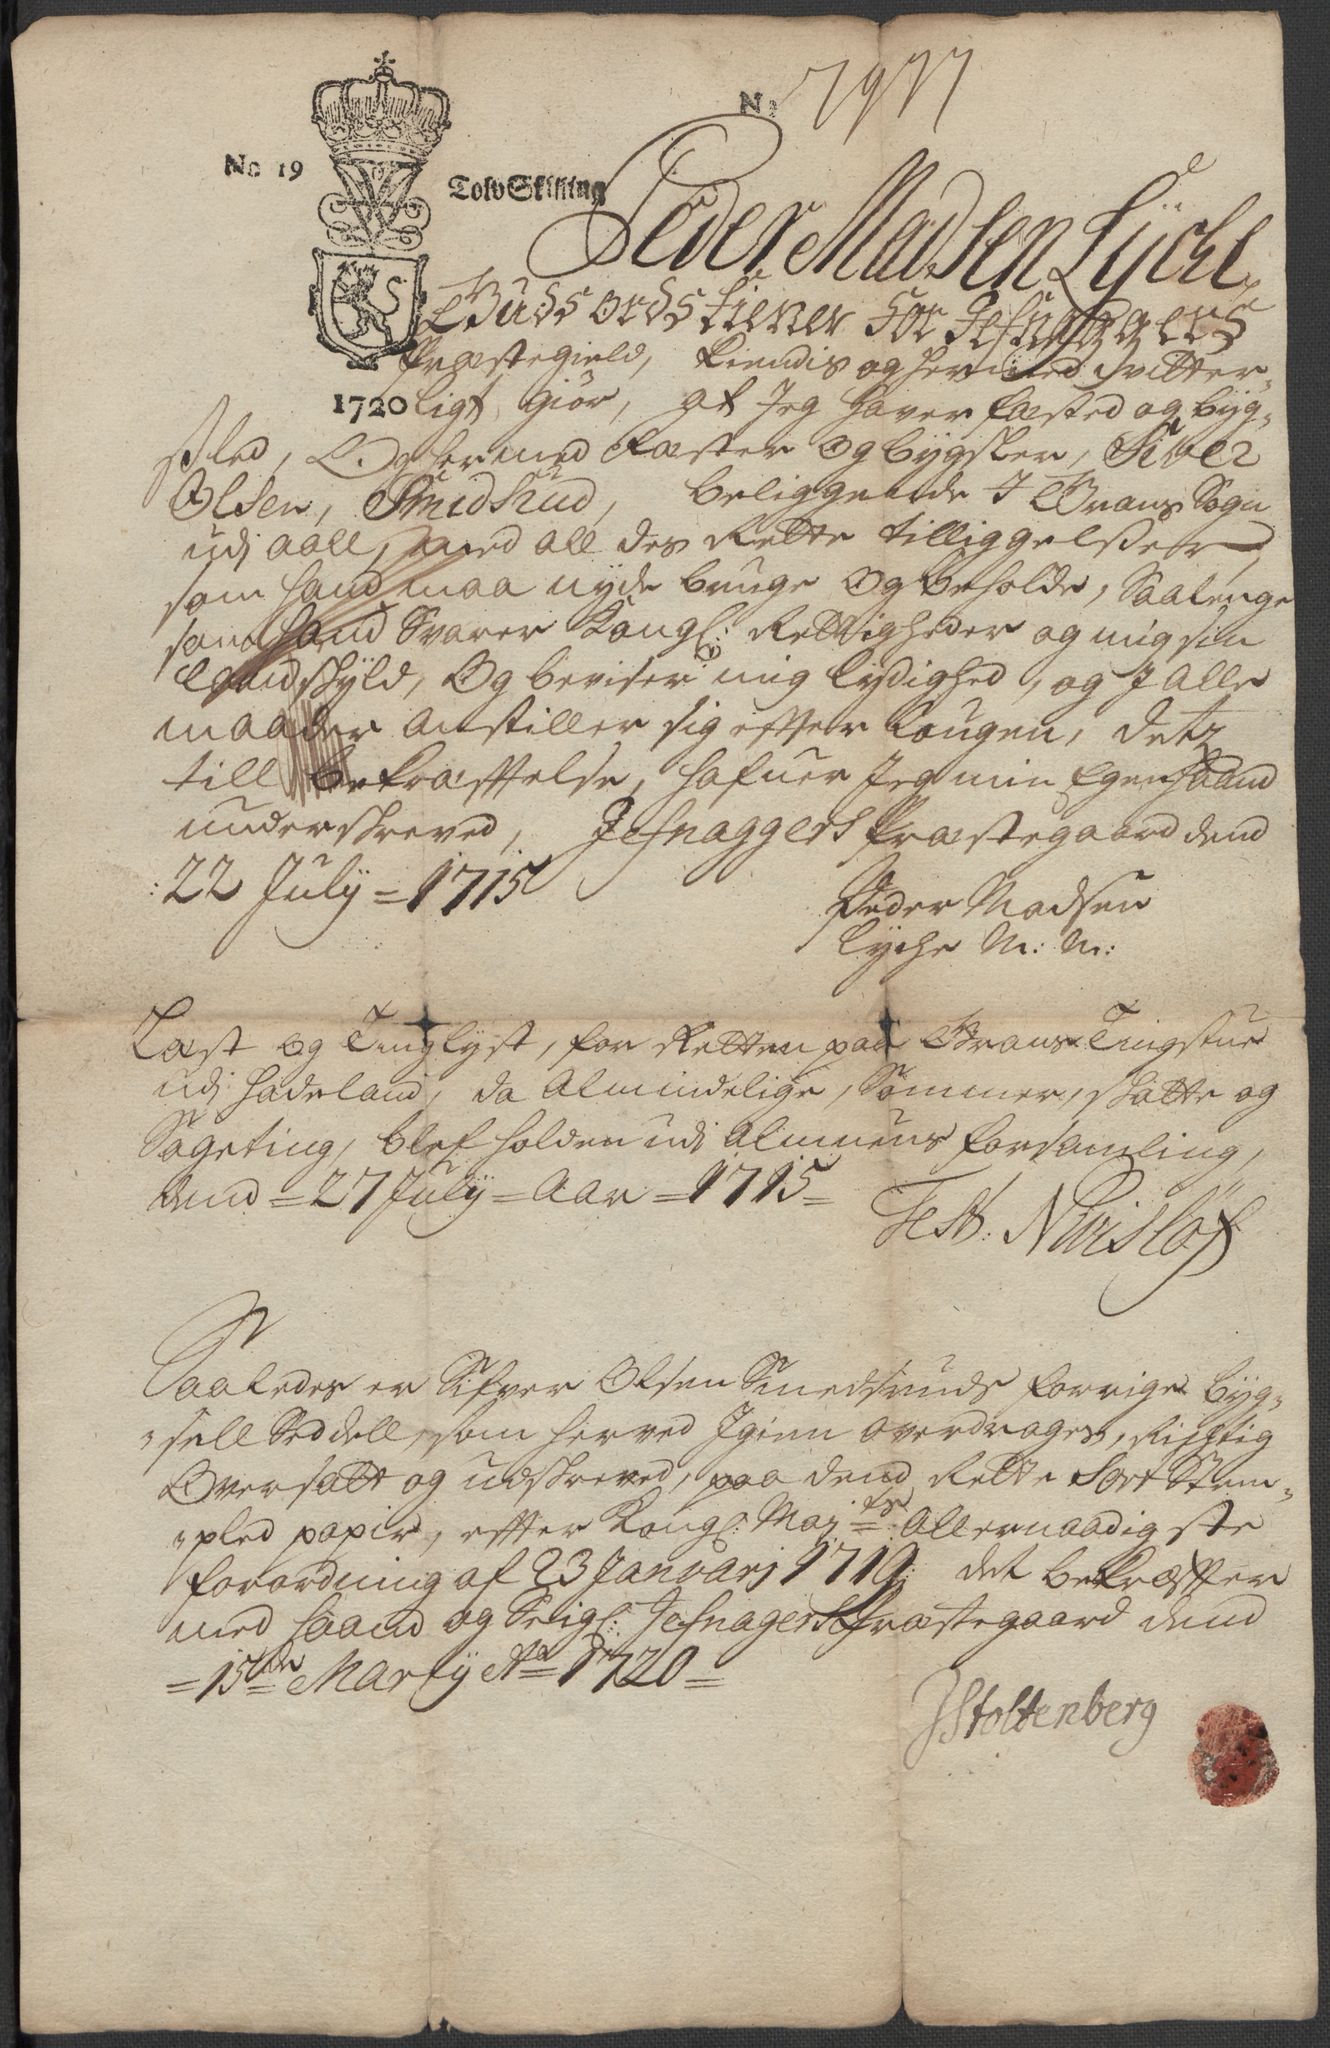 No 19
Tolv Skilling
1720
Peder Madsen Lyche
Guds ords tiener for Jefnaggers
Præstegield, Kiendis og hermed vitter-
ligt giør, at Jeg haver fæsted og byg-
sled, Og hermed Fæster og bygsler, Siver
Olsen, Smidsrud, beliggende I Grans Sogn
udj aall, med all des Rette tilliggelsser,
som hand maa nyde bruge og beholde, Saalenge
som hand Svarer Kongl: Rettigheder og mig sin
Landskyld, Og beviser mig lydighed, og J alle
maader anstiller sig efter Lougen, detz
till bekræftelse, hafuer Jeg min Egen haand
underskreved, Jefnaggers Præstegaard dend
22 July = 1715
Peder Madsen
Lyche M: M:
Læst og Tinglyst, for Retten paa Grans Tingstue
udj Hadeland, da Almindelige, Sommer, skatte og
Sageting, blef holden udi Almuens forsamling,
dend = 27 July = Aar = 1715 =
Test:
Saaledes er Sifver Olsen Smedsruds forrige byg-
sell Seddell, som herved Igien overdrages, Rigtig
Oversatt og udskreved, paa dend Rette Sort Stem-
pled papir, efter Kongl: Maj:ts Allernaadigste
forordning af 23 Januarj 1719: det bekræfter
med haand og Seigl: Jefnagers Præstegaard dend
= 15de Marty Ao 1720 =
JStoltenberg